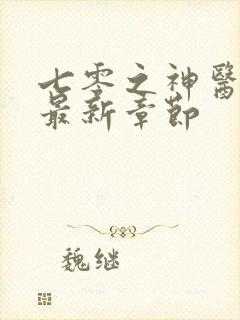 七零之神醫
最新章節
魏继